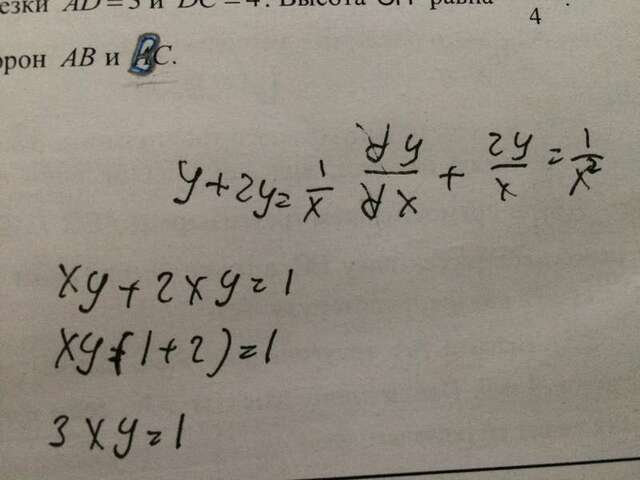 езки AD = 3 и DC = 4. Высота равна 4.
орон AB и BC.
y + 2y = 1/x y/x + 2y/x = 1/x²
xy + 2xy = 1
xy(1 + 2) = 1
3xy = 1